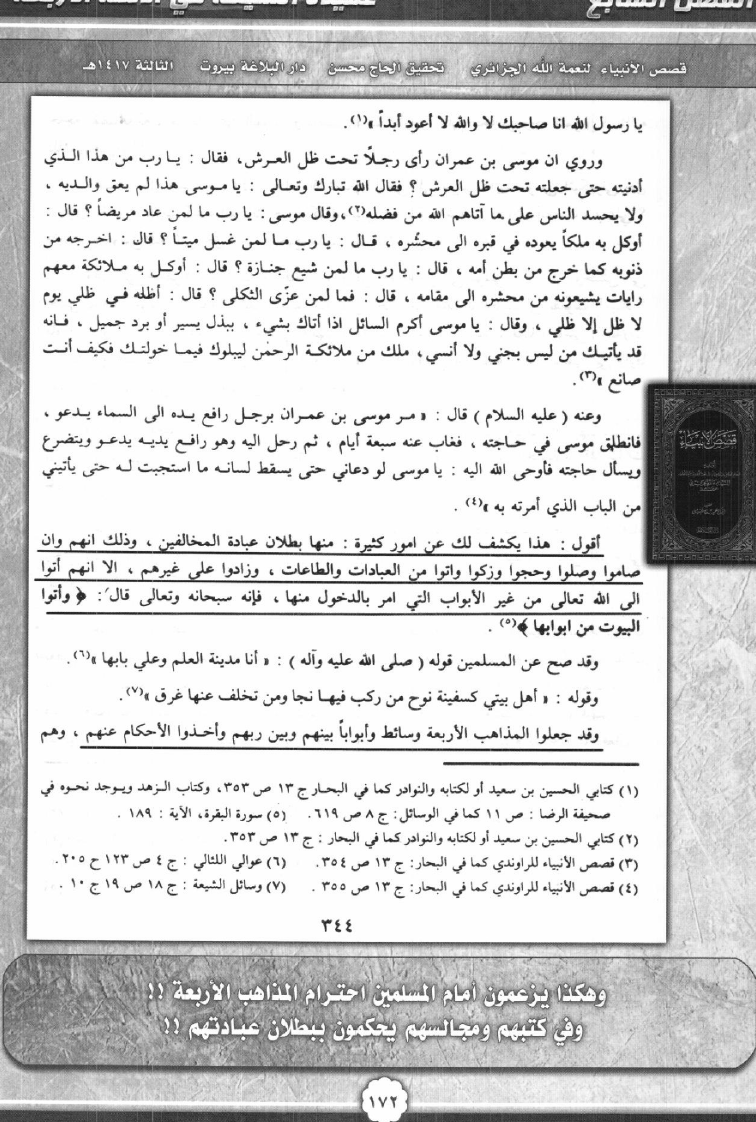 الفصل السابع
عقيدة الشيعة في الأئمة الأربعة
قصص الانبياء لنعمة الله الجزائري تحقيق الحاج محسن دار البلاغة بيروت الثالثة ١٤١٧هـ
يا رسول الله انا صاحبك لا والله لا أعود أبداً »(١).
وروي ان موسى بن عمران رأى رجلًا تحت ظل العرش، فقال : يا رب من هذا الذي
أدنيته حتى جعلته تحت ظل العرش ؟ فقال الله تبارك وتعالى : يا موسى هذا لم يعق والديه ،
ولا يحسد الناس على ما آتاهم الله من فضله(٢)، وقال موسى : يا رب ما لمن عاد مريضاً ؟ قال :
أوكل به ملكاً يعوده في قبره الى محشره ، قال : يا رب ما لمن غسل ميتاً ؟ قال : اخرجه من
ذنوبه كما خرج من بطن أمه ، قال : يا رب ما لمن شيع جنازة ؟ قال : أوكل به ملائكة معهم
رايات يشيعونه من محشره الى مقامه ، قال : فما لمن عزّى الثكلى ؟ قال : أظله في ظلي يوم
لا ظل إلا ظلي ، وقال : يا موسى أكرم السائل اذا أتاك بشيء ، ببذل يسير أو برد جميل ، فانه
قد يأتيك من ليس بجني ولا أنسي، ملك من ملائكة الرحمن ليبلوك فيما خولتك فكيف أنت
صانع »(٣).
وعنه ( عليه السلام ) قال : « مر موسى بن عمران برجل رافع يده الى السماء يدعو ،
فانطلق موسى في حاجته ، فغاب عنه سبعة أيام ، ثم رحل اليه وهو رافع يديه يدعو ويتضرع
ويسأل حاجته فأوحى الله اليه : يا موسى لو دعاني حتى يسقط لسانه ما استجبت له حتى يأتيني
من الباب الذي أمرته به »(٤) .
قصص الأنبياء
أقول : هذا يكشف لك عن امور كثيرة : منها بطلان عبادة المخالفين ، وذلك انهم وان
صاموا وصلوا وحجوا وزكوا واتوا من العبادات والطاعات ، وزادوا على غيرهم ، الا انهم أتوا
الى الله تعالى من غير الأبواب التي امر بالدخول منها ، فإنه سبحانه وتعالى قال : ﴿ وأتوا
البيوت من ابوابها ﴾(٥) .
وقد صح عن المسلمين قوله ( صلى الله عليه وآله ) : « أنا مدينة العلم وعلي بابها »(٦).
وقوله : « أهل بيتي كسفينة نوح من ركب فيها نجا ومن تخلف عنها غرق »(٧).
وقد جعلوا المذاهب الأربعة وسائط وأبواباً بينهم وبين ربهم وأخذوا الأحكام عنهم ، وهم
(١) كتابي الحسين بن سعيد أو لكتابه والنوادر كما في البحار ج ١٣ ص ٣٥٣، وكتاب الزهد ويوجد نحوه في
صحيفة الرضا : ص ١١ كما في الوسائل: ج ٨ ص ٦١٩. (٥) سورة البقرة، الآية : ١٨٩ .
(٢) كتابي الحسين بن سعيد أو لكتابه والنوادر كما في البحار : ج ١٣ ص ٣٥٣.
(٣) قصص الأنبياء للراوندي كما في البحار: ج ١٣ ص ٣٥٤. (٦) عوالي اللئالي : ج ٤ ص ١٢٣ ح ٢٠٥.
(٤) قصص الأنبياء للراوندي كما في البحار: ج ١٣ ص ٣٥٥ . (٧) وسائل الشيعة : ج ١٨ ص ١٩ ح ١٠ .
٣٤٤
وهكذا يزعمون أمام المسلمين احترام المذاهب الأربعة !!
وفي كتبهم ومجالسهم يحكمون ببطلان عبادتهم !!
١٧٢